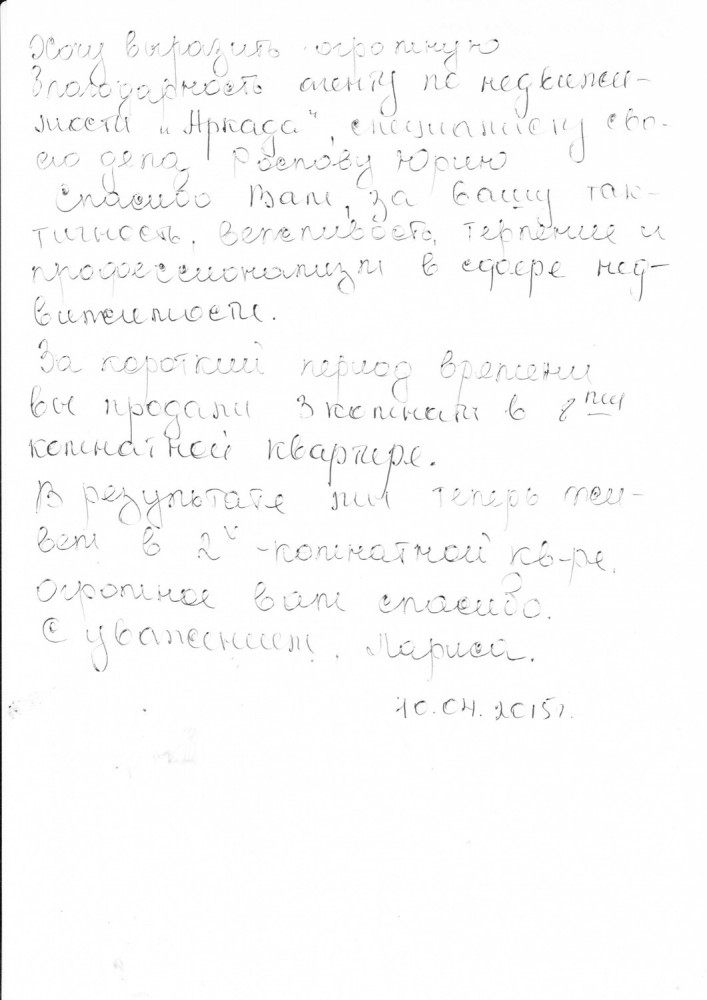 Хочу выразить огромную
благодарность агенту по недвижи-
мости "Аркада", специалисту сво-
его дела, Рослову Юрию
Спасибо Вам, за Вашу так-
тичность, вежливость, терпение и
профессионализм в сфере нед-
вижимости.
За короткий период времени
вы продали 3 комнаты в 8ми
комнатной квартире.
В результате мы теперь жи-
вем в 2х-комнатной кв-ре.
Огромное вам спасибо.
С уважением, Лариса.
10.04.2015г.